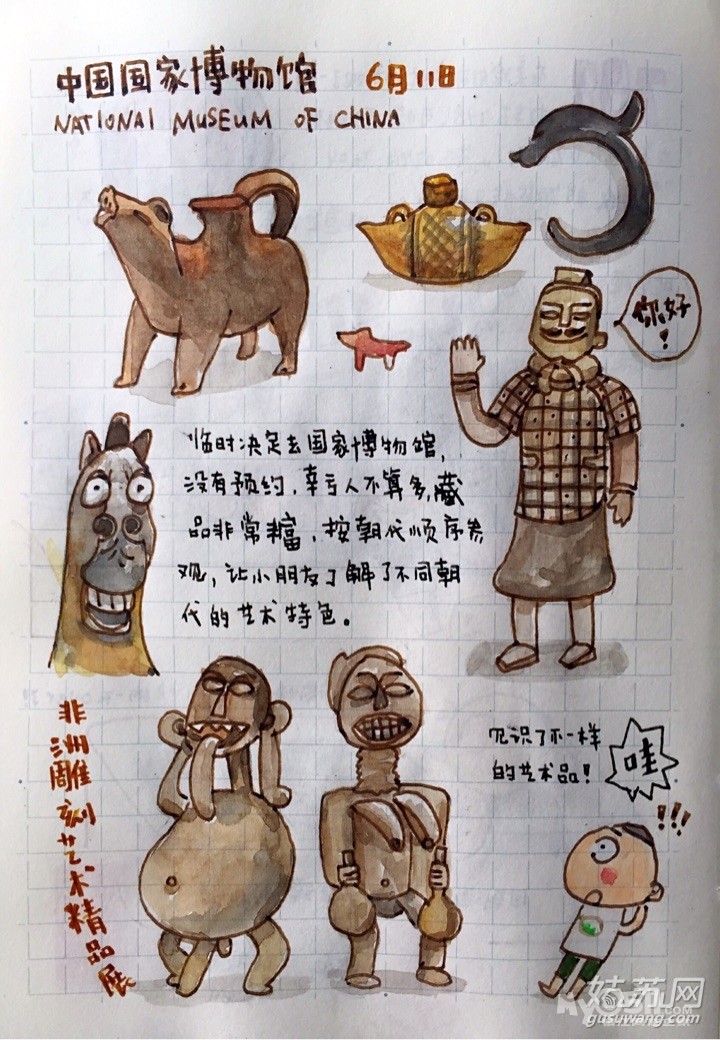 中国国家博物馆 6月11日
NATIONAL MUSEUM OF CHINA
你好!
临时决定去国家博物馆,
没有预约,幸亏人不算多,藏
品非常丰富,按朝代顺序参
观,让小朋友了解了不同朝
代的艺术特色。
非洲雕刻艺术精品展
见识了不一样
的艺术品!
哇
!!!
姑苏网
gusuwang.com